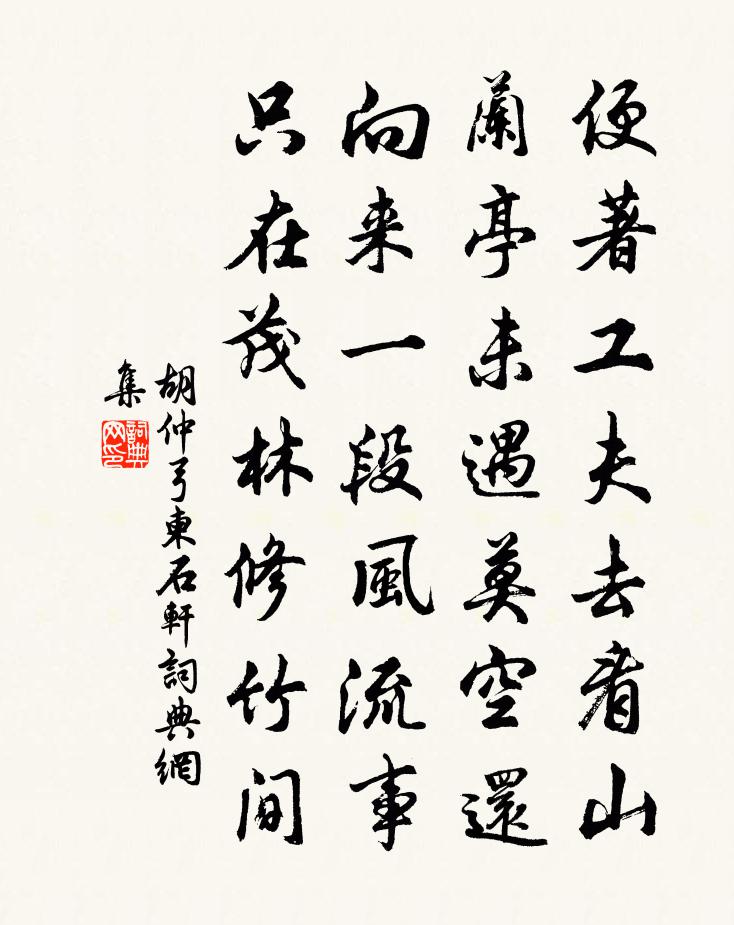 便著工夫去看山
蘭亭未遇莫空還
向来一段風流事
只在茂林修竹間
胡仲弓東石軒詞典網
集
詞典
网印